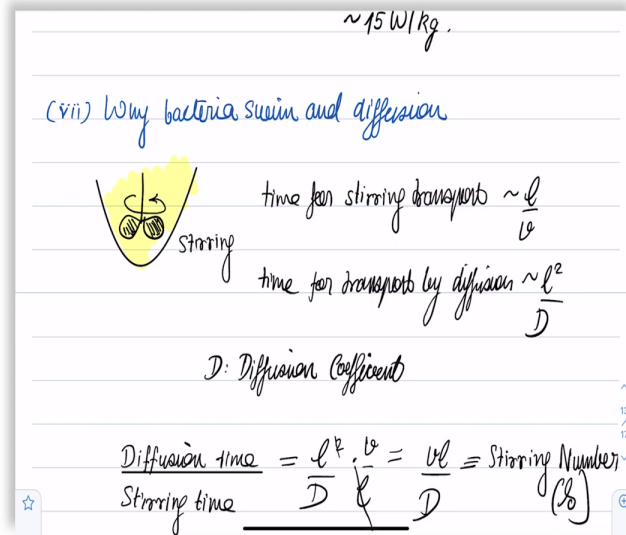 ~ 15 W/kg.
(vii) Why bacteria swim and diffusion
time for stirring transport ~ l/v
Stirring
time for transport by diffusion ~ l²/D
D: Diffusion Coefficient
Diffusion time / Stirring time = l²/D · v/l = vl/D ≡ Stirring Number
(S)